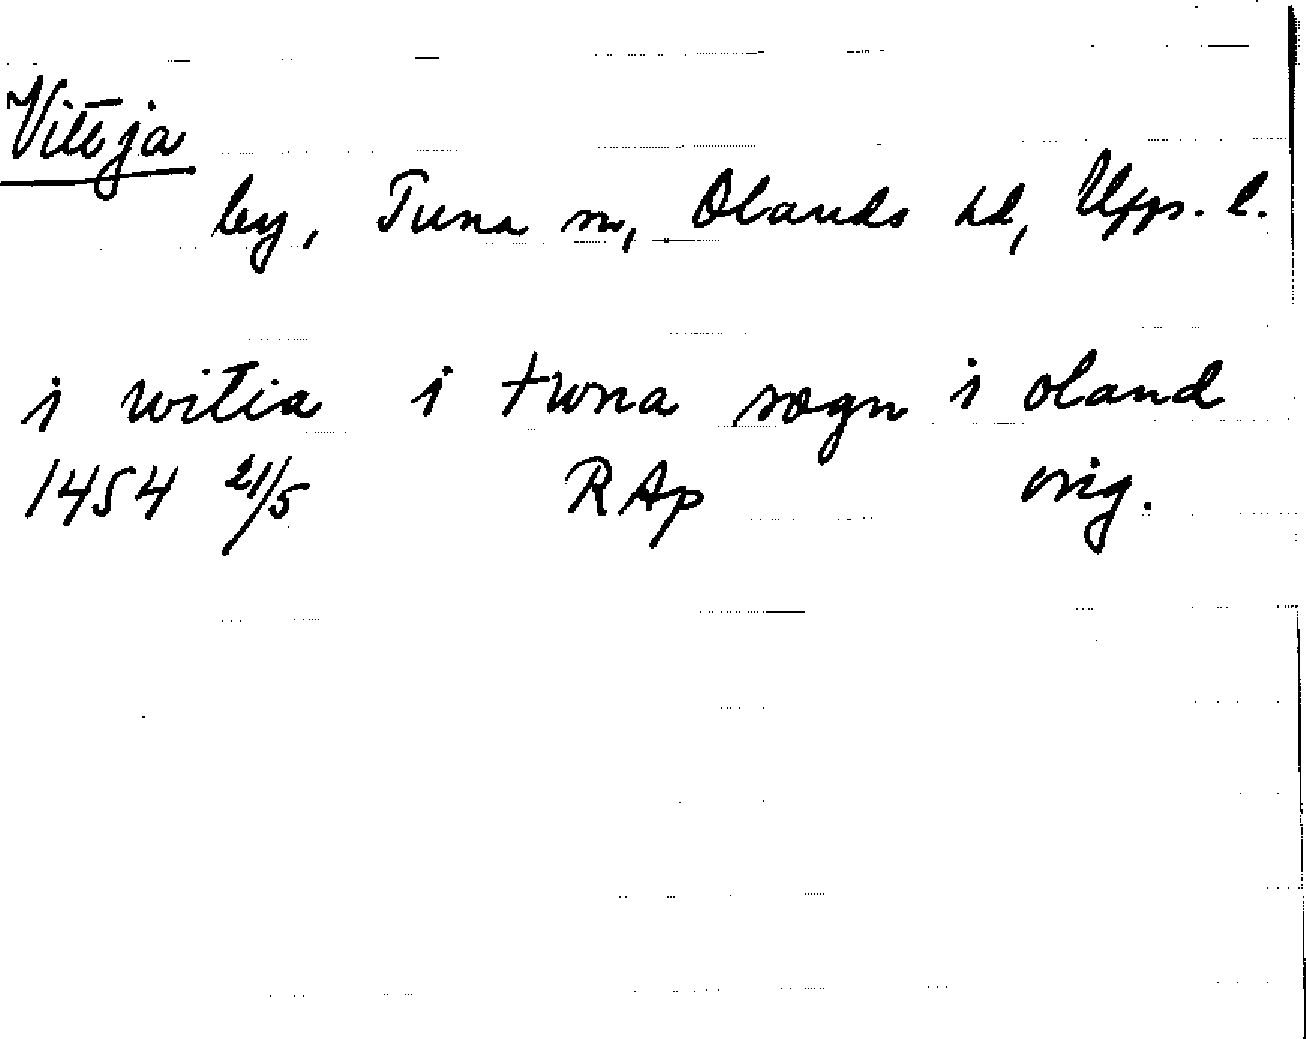 Vittja
by, Tuna sn, Olands hd, Upps. l.
i witia i twna sogn i oland
1454 21/5 RAp orig.